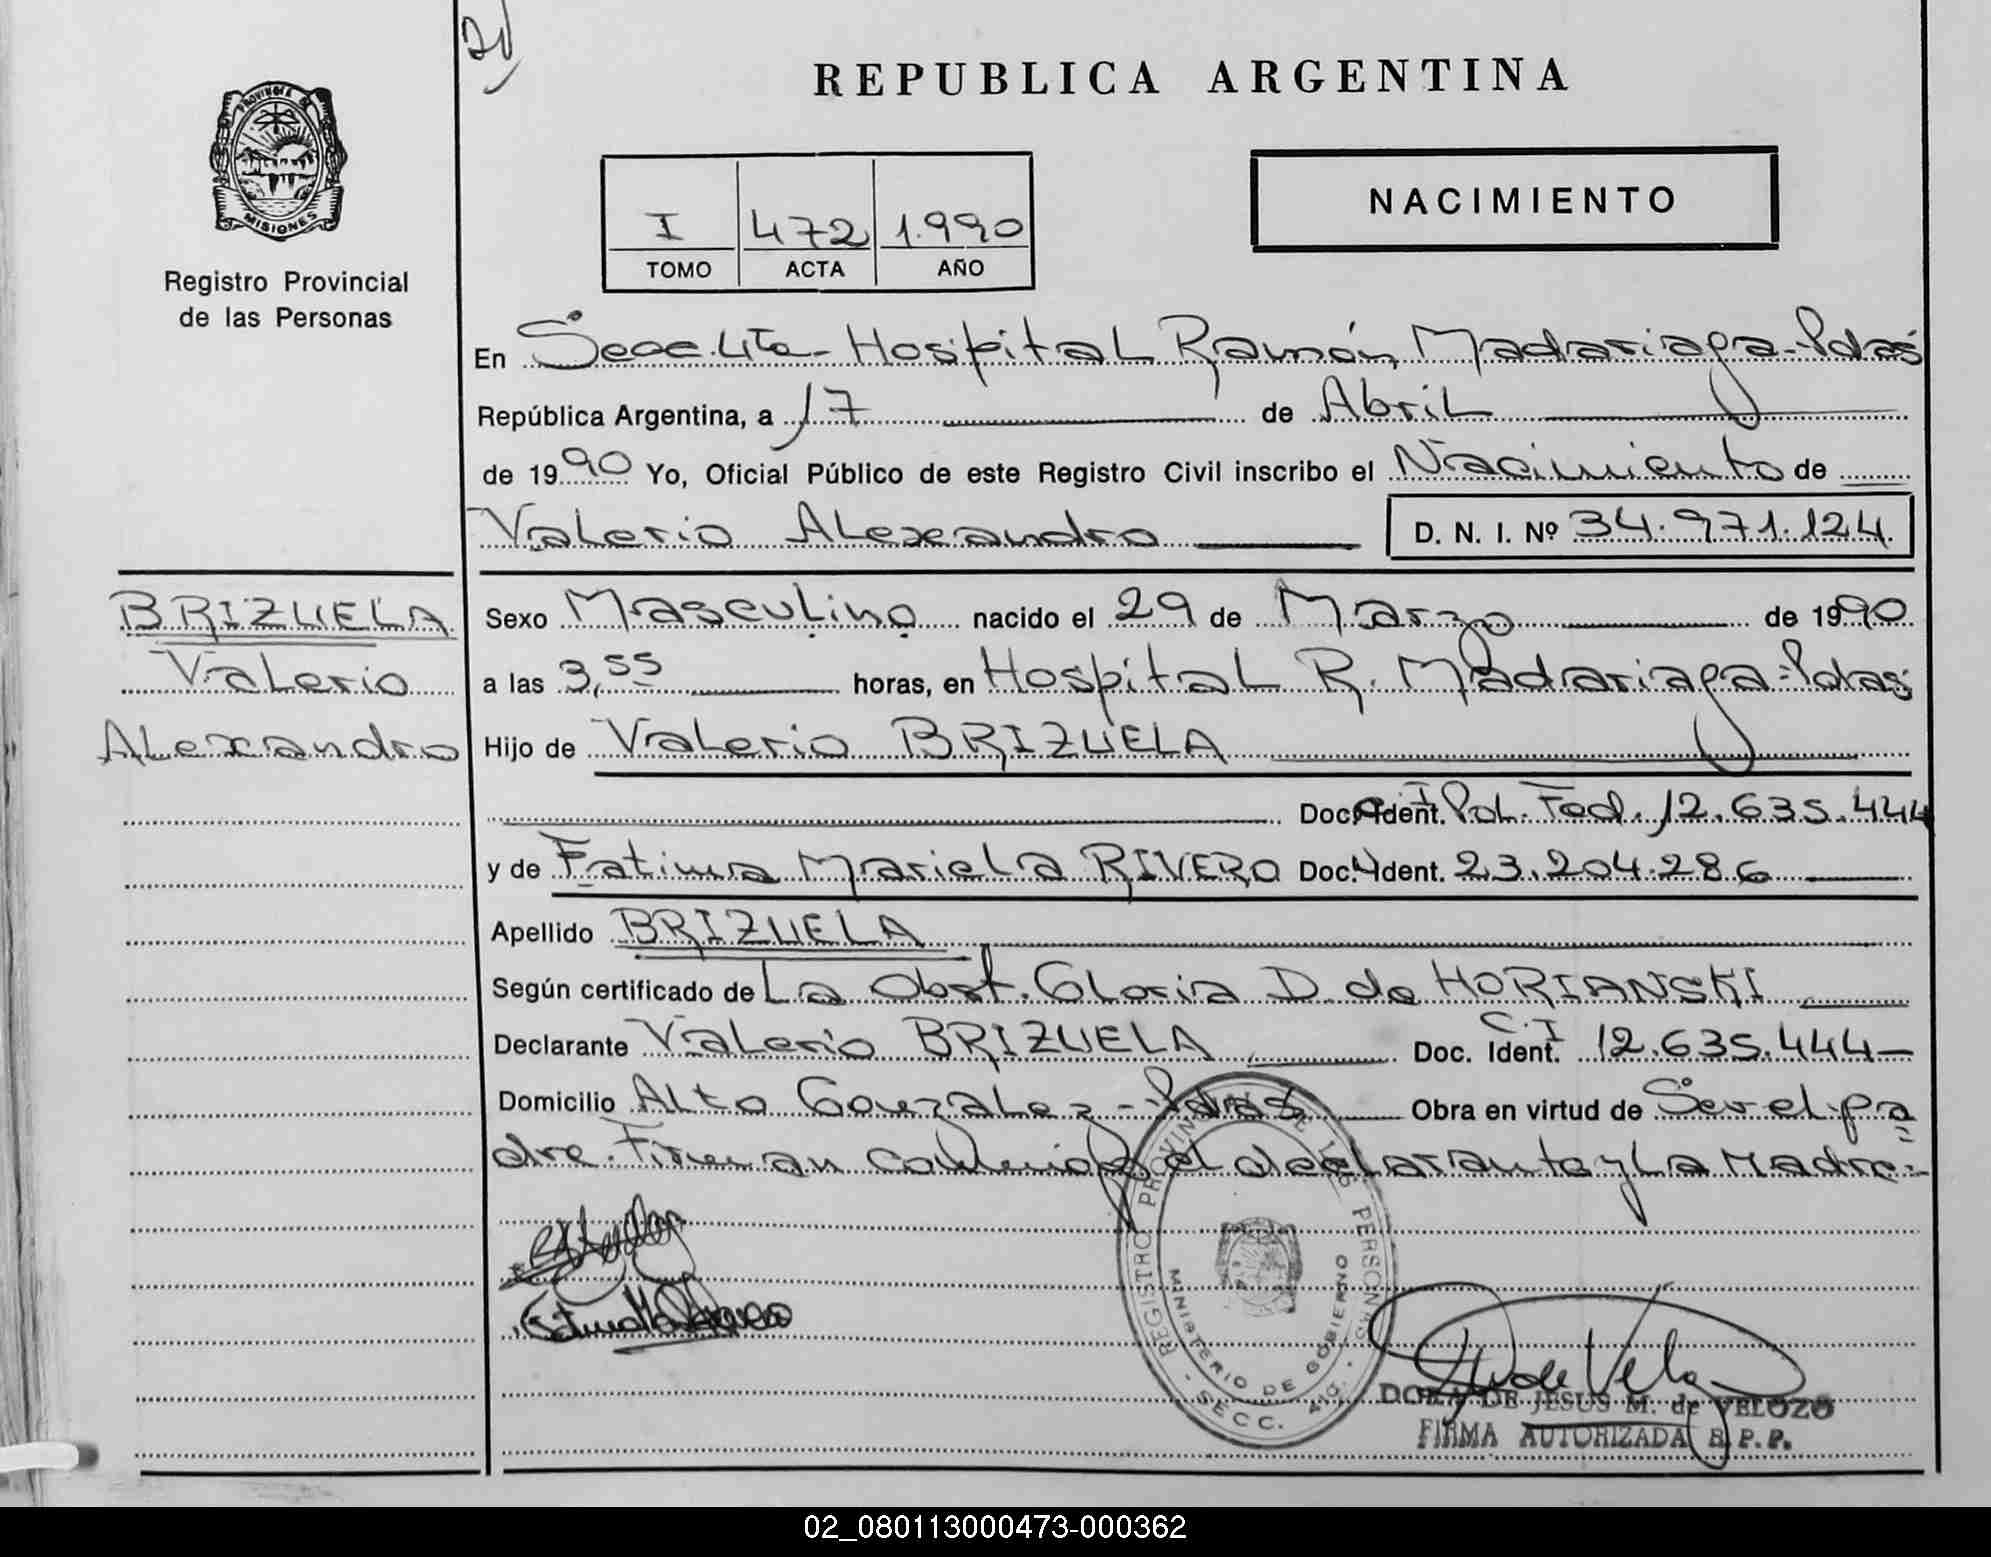 REPUBLICA ARGENTINA
PROVINCIA DE
MISIONES
Registro Provincial
de las Personas
NACIMIENTO
I 472 1.990
TOMO ACTA AÑO
En Secc. 4ta - Hospital Ramón Madariaga - Pdas
República Argentina, a 17 de Abril
de 1990 Yo, Oficial Público de este Registro Civil inscribo el Nacimiento de
Valerio Alexandro D. N. I. Nº 34.971.124
BRIZUELA
Valerio
Alexandro
Sexo Masculino nacido el 29 de Marzo de 1990
a las 3,55 horas, en Hospital R. Madariaga - Pdas
Hijo de Valerio BRIZUELA
Doc. Ident. C.I. Pol. Fed. 12.635.444
y de Fatima Mariela RIVERO Doc. Ident. 23.204.286
Apellido BRIZUELA
Según certificado de La Obst. Gloria D. de HORIANSKI
Declarante Valerio BRIZUELA Doc. Ident. C.I 12.635.444
Domicilio Alto Gonzalez - Pdas Obra en virtud de Ser el pa
dre. Firman conmigo el declarante y la Madre.-
REGISTRO PROVINCIAL DE LAS PERSONAS
MINISTERIO DE GOBIERNO
SECC. 4ta.
DORA DE JESUS M. de VELOZO
FIRMA AUTORIZADA R. P. P.
02_080113000473-000362